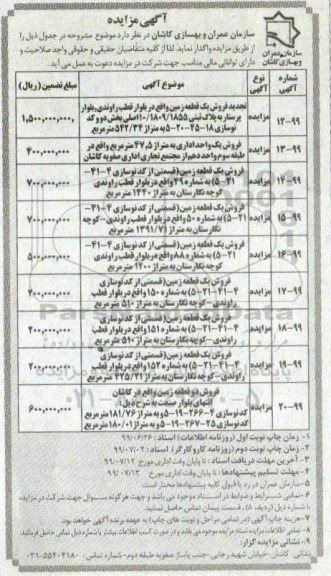 آگهی مزایده
سازمان عمران و بهسازی کاشان در نظر دارد موضوع مشروحه در جدول ذیل را
از طریق مزایده واگذار نماید. لذا از کلیه متقاضیان حقیقی و حقوقی واجد صلاحیت و
دارای توانائی مالی مناسب جهت شرکت در مزایده دعوت به عمل می آید.
سازمان عمران
و بهسازی کاشان
شماره آگهی
نوع آگهی
موضوع آگهی
مبلغ تضمین (ریال)
۹۹-۱۲
مزایده
تجدید فروش یک قطعه زمین واقع در بلوار قطب راوندی، بلوار
پرستار به پلاک ثبتی ۱۰/۱۸۰۹/۱۸۵۵ اصلی بخش دو و کد
نوسازی ۱۸-۴۵-۲۰-۵ به متراژ ۵۴۲/۳۴ مترمربع
۱,۵۰۰,۰۰۰,۰۰۰
۹۹-۱۳
مزایده
فروش یک واحد اداری به متراژ ۴۷,۵ مترمربع واقع در
طبقه سوم واحد دهم از مجتمع تجاری اداری صفویه کاشان
۴۰۰,۰۰۰,۰۰۰
۹۹-۱۴
مزایده
فروش یک قطعه زمین (قسمتی از کد نوسازی ۴-۴۱-
۲۱-۵) به شماره ۲۹ واقع در بلوار قطب راوندی
کوچه نگارستان به متراژ ۱۴۴۰ مترمربع
۷۰۰,۰۰۰,۰۰۰
۹۹-۱۵
مزایده
فروش یک قطعه زمین (قسمتی از کد نوسازی ۴-۴۱-
۲۱-۵) به شماره ۵۰ واقع در بلوار قطب راوندی-کوچه
نگارستان به متراژ ۱۳۹۱/۷۱ مترمربع
۷۰۰,۰۰۰,۰۰۰
۹۹-۱۶
مزایده
فروش یک قطعه زمین (قسمتی از کد نوسازی ۴-۴۱-
۲۱-۵) به شماره ۸۸ واقع در بلوار قطب راوندی
کوچه نگارستان به متراژ ۱۲۰۰ مترمربع
۵۰۰,۰۰۰,۰۰۰
۹۹-۱۷
مزایده
فروش یک قطعه زمین (قسمتی از کد نوسازی
۴-۴۱-۲۱-۵) به شماره ۱۵۰ واقع در بلوار قطب
راوندی-کوچه نگارستان به متراژ ۵۱۰ مترمربع
۲۰۰,۰۰۰,۰۰۰
۹۹-۱۸
مزایده
فروش یک قطعه زمین (قسمتی از کد نوسازی
۴-۴۱-۲۱-۵) به شماره ۱۵۱ واقع در بلوار قطب
راوندی-کوچه نگارستان به متراژ ۵۱۰ مترمربع
۲۰۰,۰۰۰,۰۰۰
۹۹-۱۹
مزایده
فروش یک قطعه زمین (قسمتی از کد نوسازی
۴-۴۱-۲۱-۵) به شماره ۱۵۲ واقع در بلوار قطب
راوندی-کوچه نگارستان به متراژ ۴۲۵/۲۱ مترمربع
۲۰۰,۰۰۰,۰۰۰
۹۹-۲۰
مزایده
فروش دو قطعه زمین واقع در کاشان
انتهای بلوار صنعت به شرح ذیل:
کد نوسازی ۴-۲۶۶-۱۹-۵ و به متراژ ۱۸۱/۷۶ مترمربع
کد نوسازی ۲۵-۲۶۷-۱۹-۵ و به متراژ ۱۸۰/۰۱ مترمربع
۶۰۰,۰۰۰,۰۰۰
۱- زمان چاپ نوبت اول (روزنامه اطلاعات) اسناد: ۹۹/۰۶/۲۶
۲- زمان چاپ نوبت دوم (روزنامه کار و کارگر) اسناد: ۹۹/۰۷/۰۲
۳- آخرین مهلت دریافت اسناد: تا پایان وقت اداری مورخ ۹۹/۰۷/۱۲
۴- مهلت تسلیم پیشنهادها: تا پایان وقت اداری مورخ ۹۹/۰۷/۱۳
۵- سازمان عمران در رد یا قبول کلیه پیشنهادها مختار است.
۶- تمامی شرایط و ضوابط در اسناد موجود می باشد و جهت هرگونه سوال جهت شرکت در مزایده
با شماره ذیل (ردیف ۸)، قسمت پیمان تماس حاصل نمائید.
۷- هزینه چاپ آگهی (در تمامی مراحل و نوبت های چاپ) به عهده برنده آگهی خواهد بود.
۹- نشانی مزایده گزار:
نشانی: کاشان- خیابان شهید رجایی- جنب پاساژ صفویه طبقه دوم- شماره تماس: ۰۳۱-۵۵۴۰۴۱۸۰